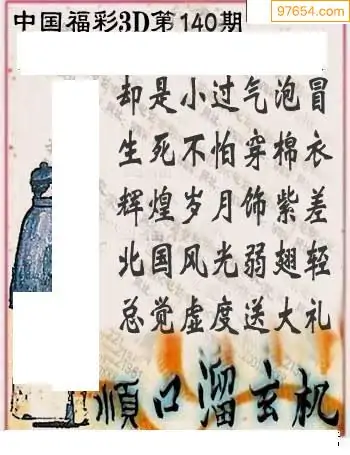 97654.com
中国福彩3D第140期
却是小过气泡冒
生死不怕穿棉衣
辉煌岁月饰紫差
北国风光弱翅轻
总觉虚度送大礼
顺口溜玄机